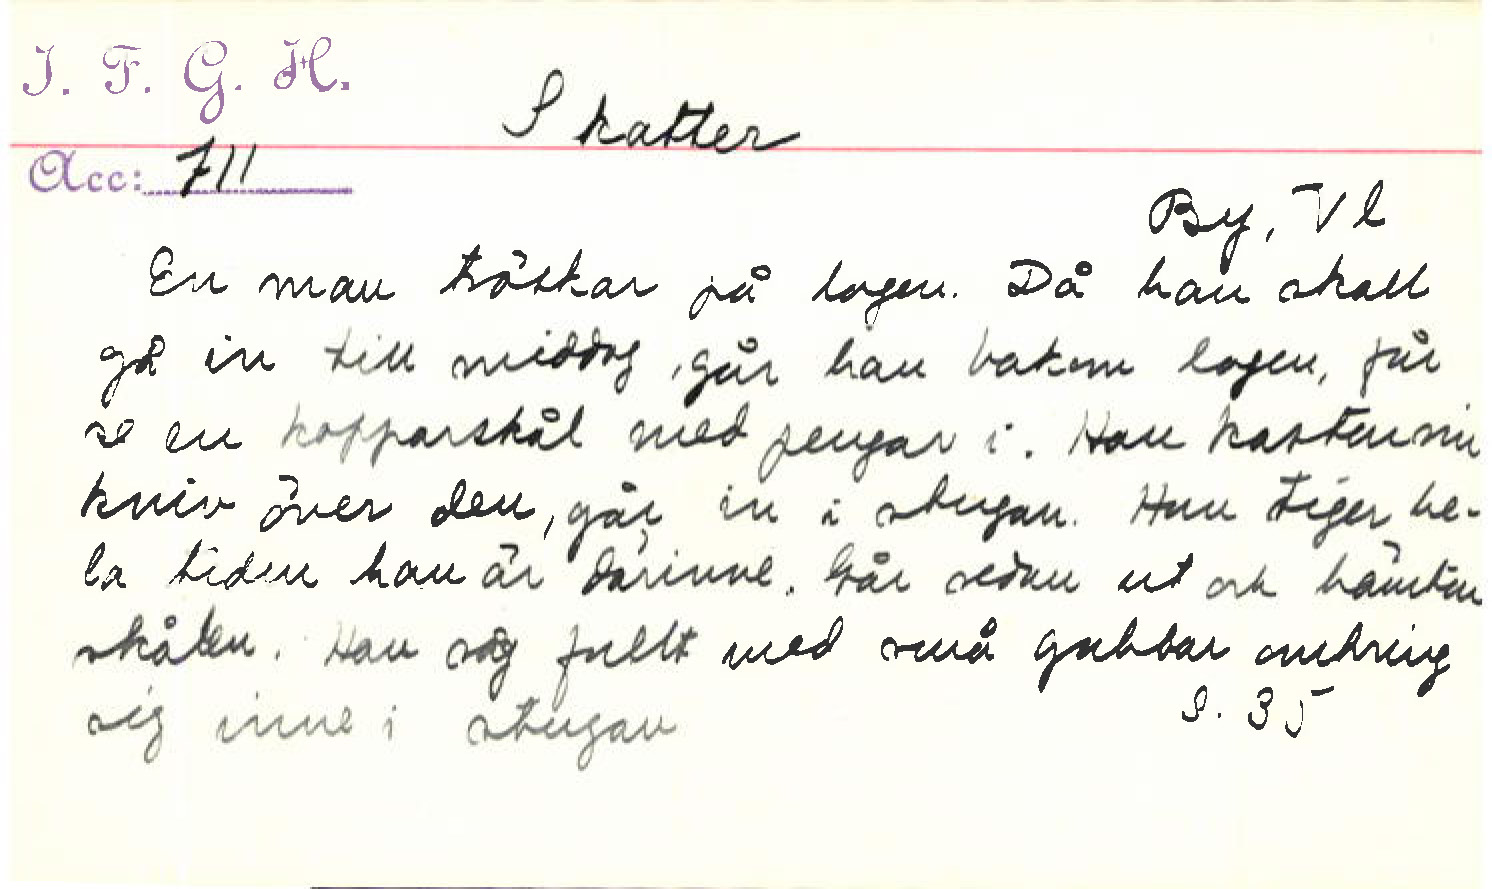 I. F. G. H.
Skatter
Acc: 711
By, Vl
En man tröskar på logen. Då han skall
gå in till middag, går han bakom logen, får
se en kopparskål med pengar i. Han kastar sin
kniv över den, går in i stugan. Han tiger he-
la tiden han är därinne. Går sedan ut och hämtar
skålen. Han såg fullt med små gubbar omkring
sig inne i stugan
S. 35